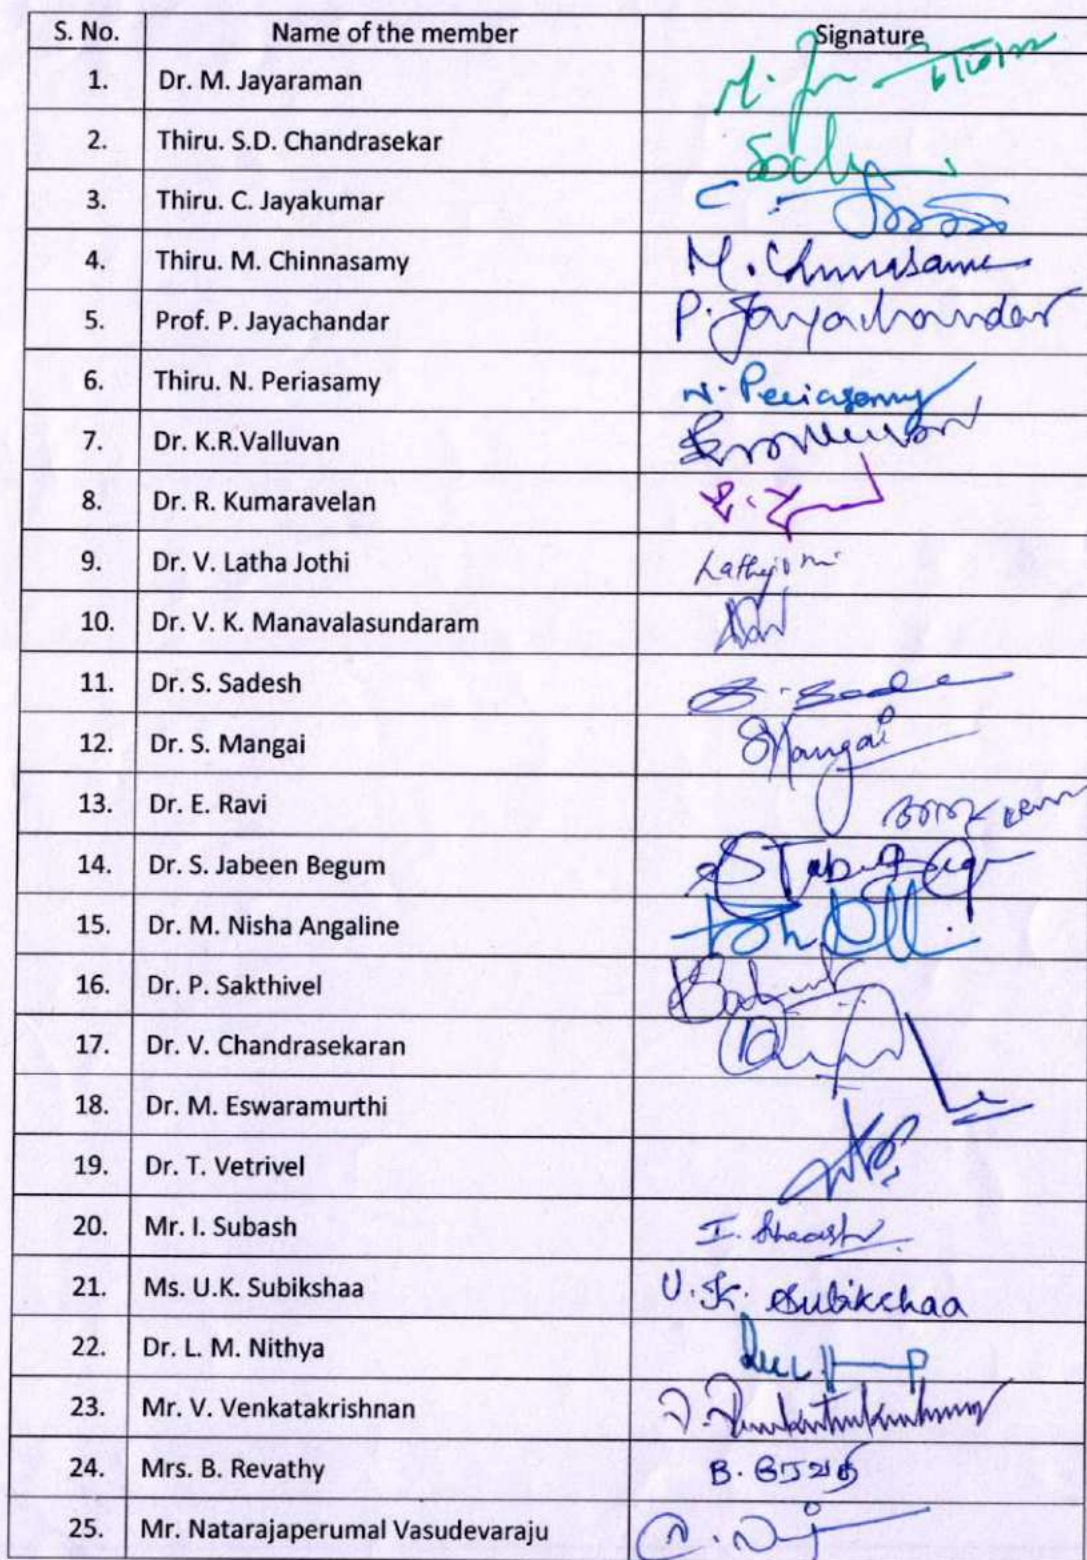 S. No. Name of the member Signature
1. Dr. M. Jayaraman M.
2. Thiru. S.D. Chandrasekar
3. Thiru. C. Jayakumar C.
4. Thiru. M. Chinnasamy M. Chinnasamy
5. Prof. P. Jayachandar P. Jayachandar
6. Thiru. N. Periasamy N. Periasamy
7. Dr. K.R.Valluvan
8. Dr. R. Kumaravelan
9. Dr. V. Latha Jothi Lathajothi
10. Dr. V. K. Manavalasundaram
11. Dr. S. Sadesh S.
12. Dr. S. Mangai S Mangai
13. Dr. E. Ravi
14. Dr. S. Jabeen Begum
15. Dr. M. Nisha Angaline
16. Dr. P. Sakthivel
17. Dr. V. Chandrasekaran
18. Dr. M. Eswaramurthi
19. Dr. T. Vetrivel
20. Mr. I. Subash I.
21. Ms. U.K. Subikshaa U.K. Subikshaa
22. Dr. L. M. Nithya
23. Mr. V. Venkatakrishnan V. Venkatakrishnan
24. Mrs. B. Revathy B. ரேவதி
25. Mr. Natarajaperumal Vasudevaraju